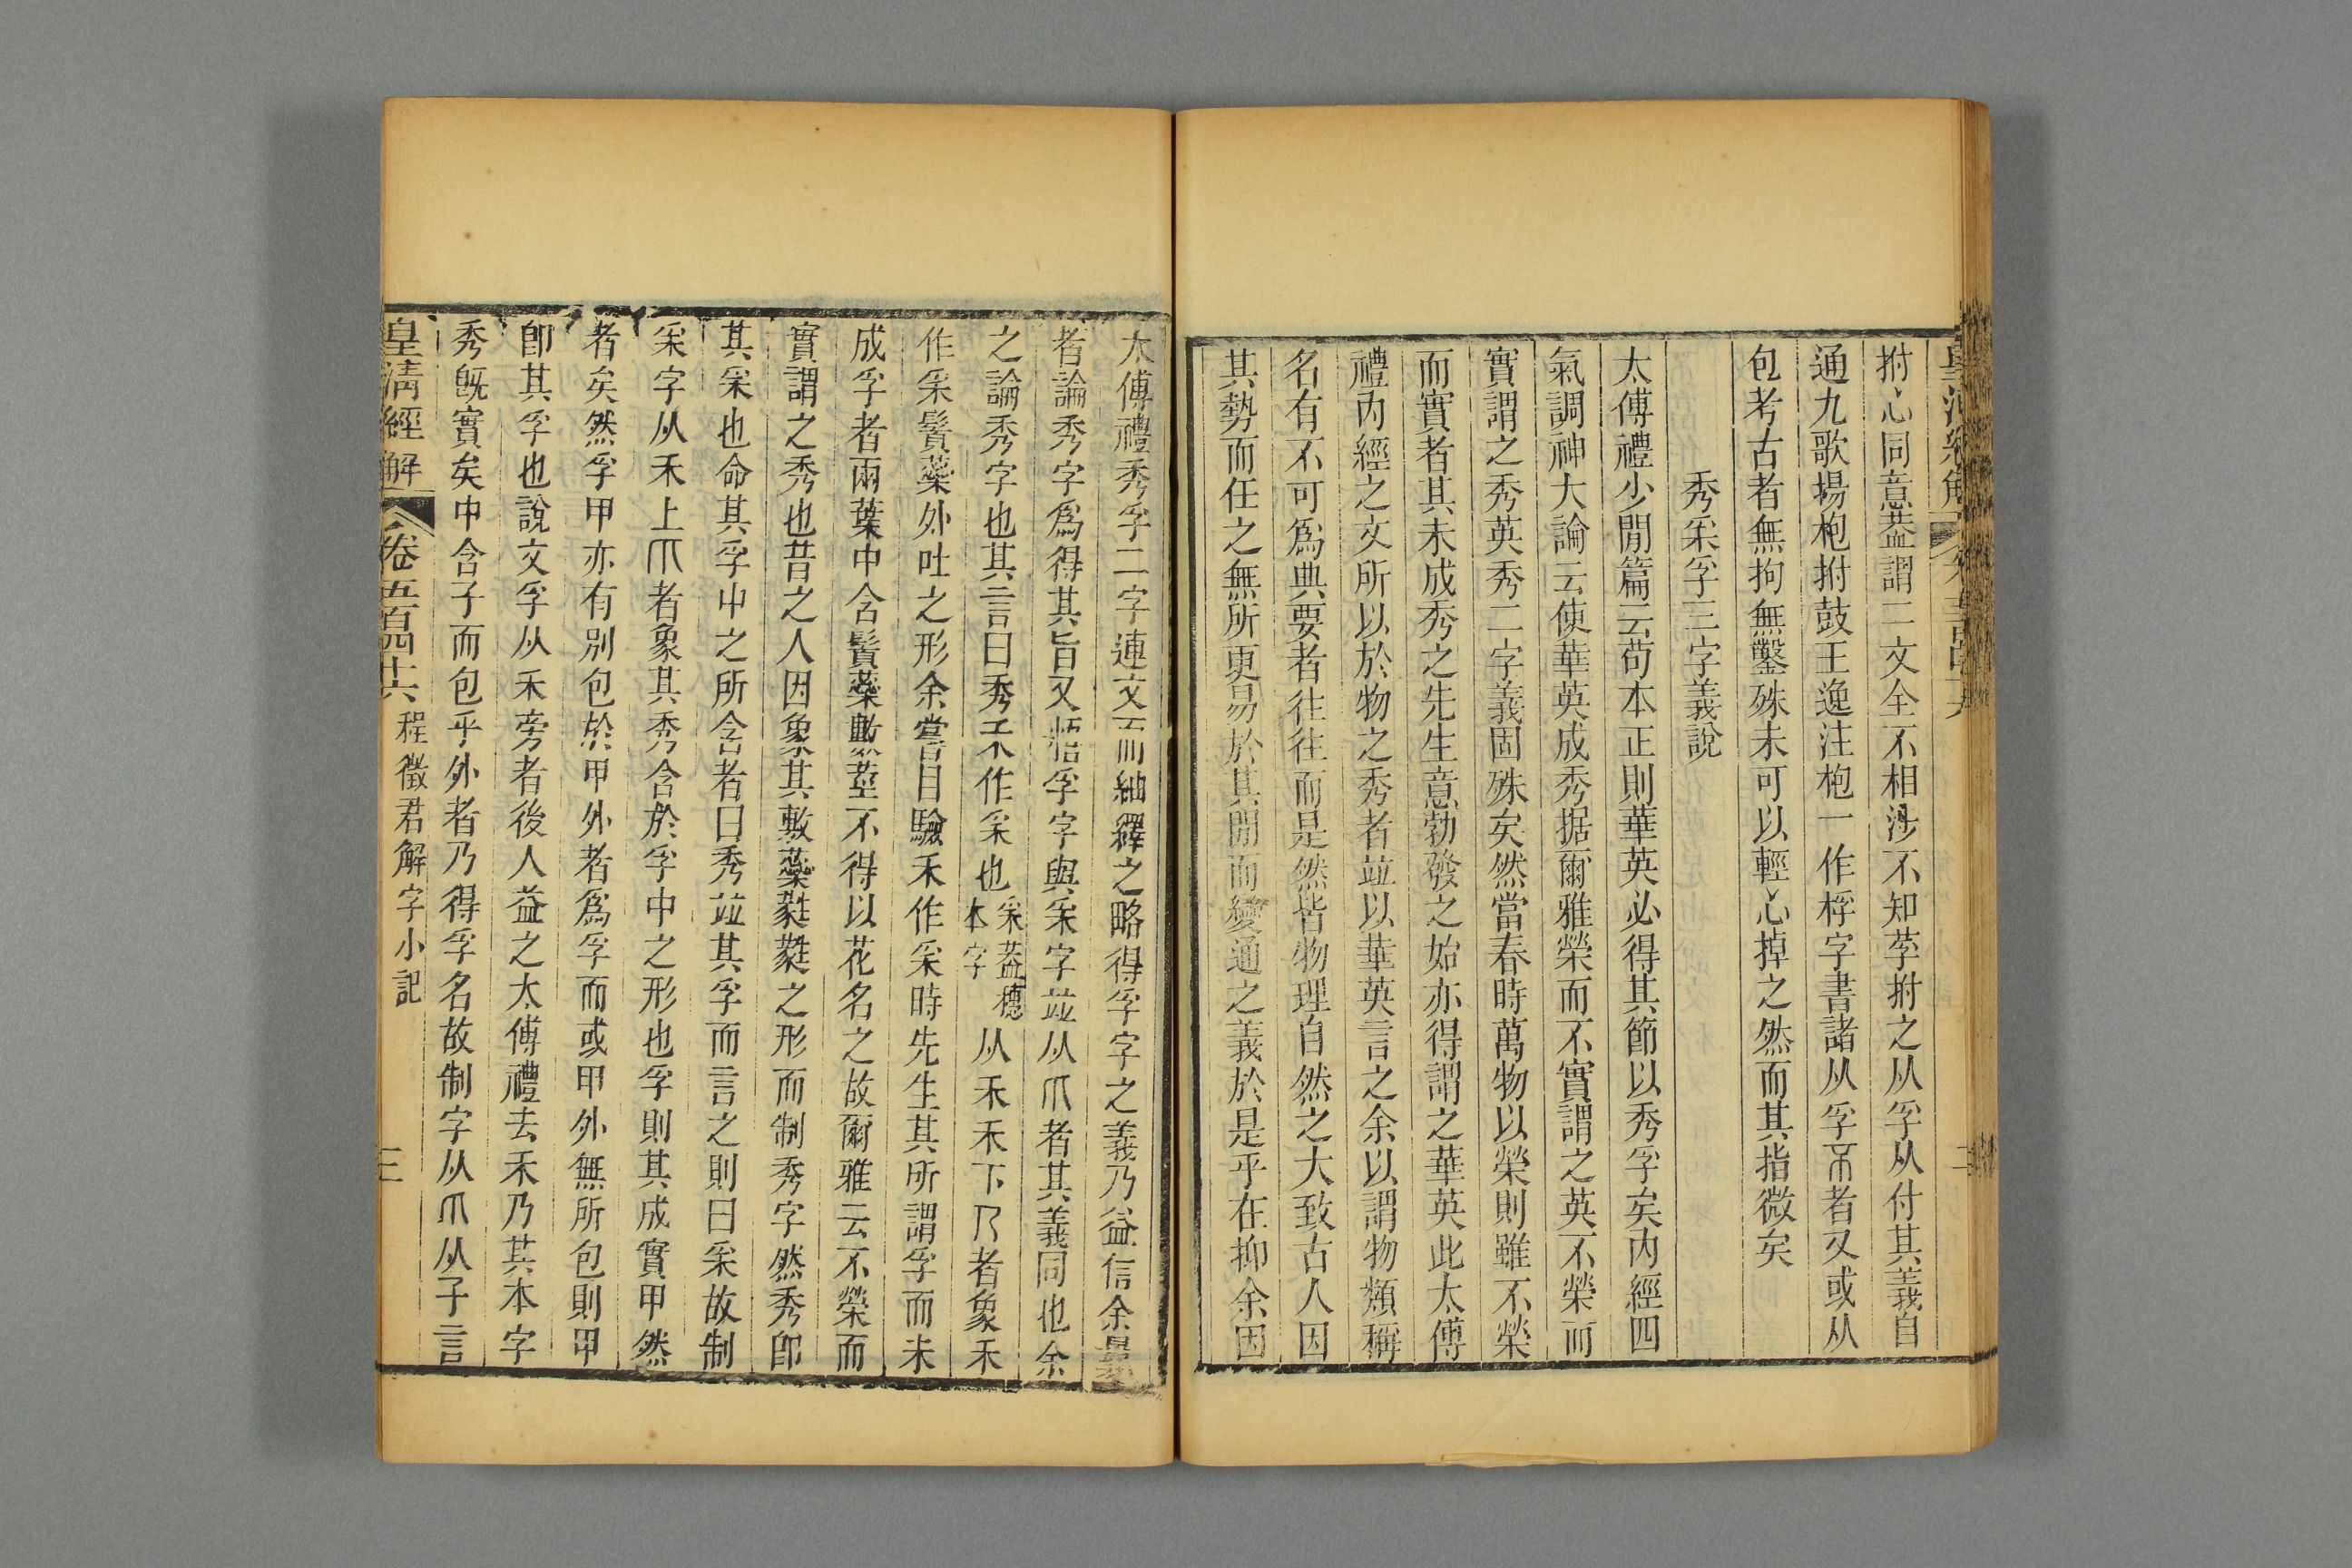 拊心同意葢謂二文全不相涉不知莩拊之从孚从付其義自
通九歌揚枹拊鼓王逸注枹一作桴字書諸从孚者又或从
包考古者無拘無鑿殊未可以輕心掉之然而其指微矣
秀采孚三字義說
太傅禮少閒篇云苟本正則華英必得其節以秀孚矣內經四
氣調神大論云使華英成秀据爾雅榮而不實謂之英不榮而
實謂之秀英秀二字義固殊矣然當春時萬物以榮則雖不榮
而實者其未成秀之先生意勃發之始亦得謂之華英此太傅
禮內經之文所以於物之秀者竝以華英言之余以謂物類稱
名有不可爲典要者往往而是然皆物理自然之大致古人因
其勢而任之無所更易於其閒而變通之義於是乎在抑余因
太傅禮秀孚二字連文而紬繹之略得孚字之義乃益信余曩
者論秀字爲得其旨又悟孚字與采字竝从爪者其義同也余
之論秀字也其言曰秀禾作采也采葢穗本字从禾禾下乃者象禾
作采鬚蘂外吐之形余嘗目驗禾作采時先生其所謂孚而未
成孚者兩葉中含鬚蘂數莖不得以花名之故爾雅云不榮而
實謂之秀也昔之人因象其敷蘂蕤蕤之形而制秀字然秀卽
其采也命其孚中之所含者曰秀竝其孚而言之則曰采故制
采字从禾上爪者象其秀含於孚中之形也孚則其成實甲然
者矣然孚甲亦有別包於甲外者爲孚而或甲外無所包則甲
卽其孚也說文孚从禾旁者後人益之太傅禮去禾乃其本字
秀旣實矣中含子而包乎外者乃得孚名故制字从爪从子言
皇清經解 卷五百四十六 程徵君解字小記 三